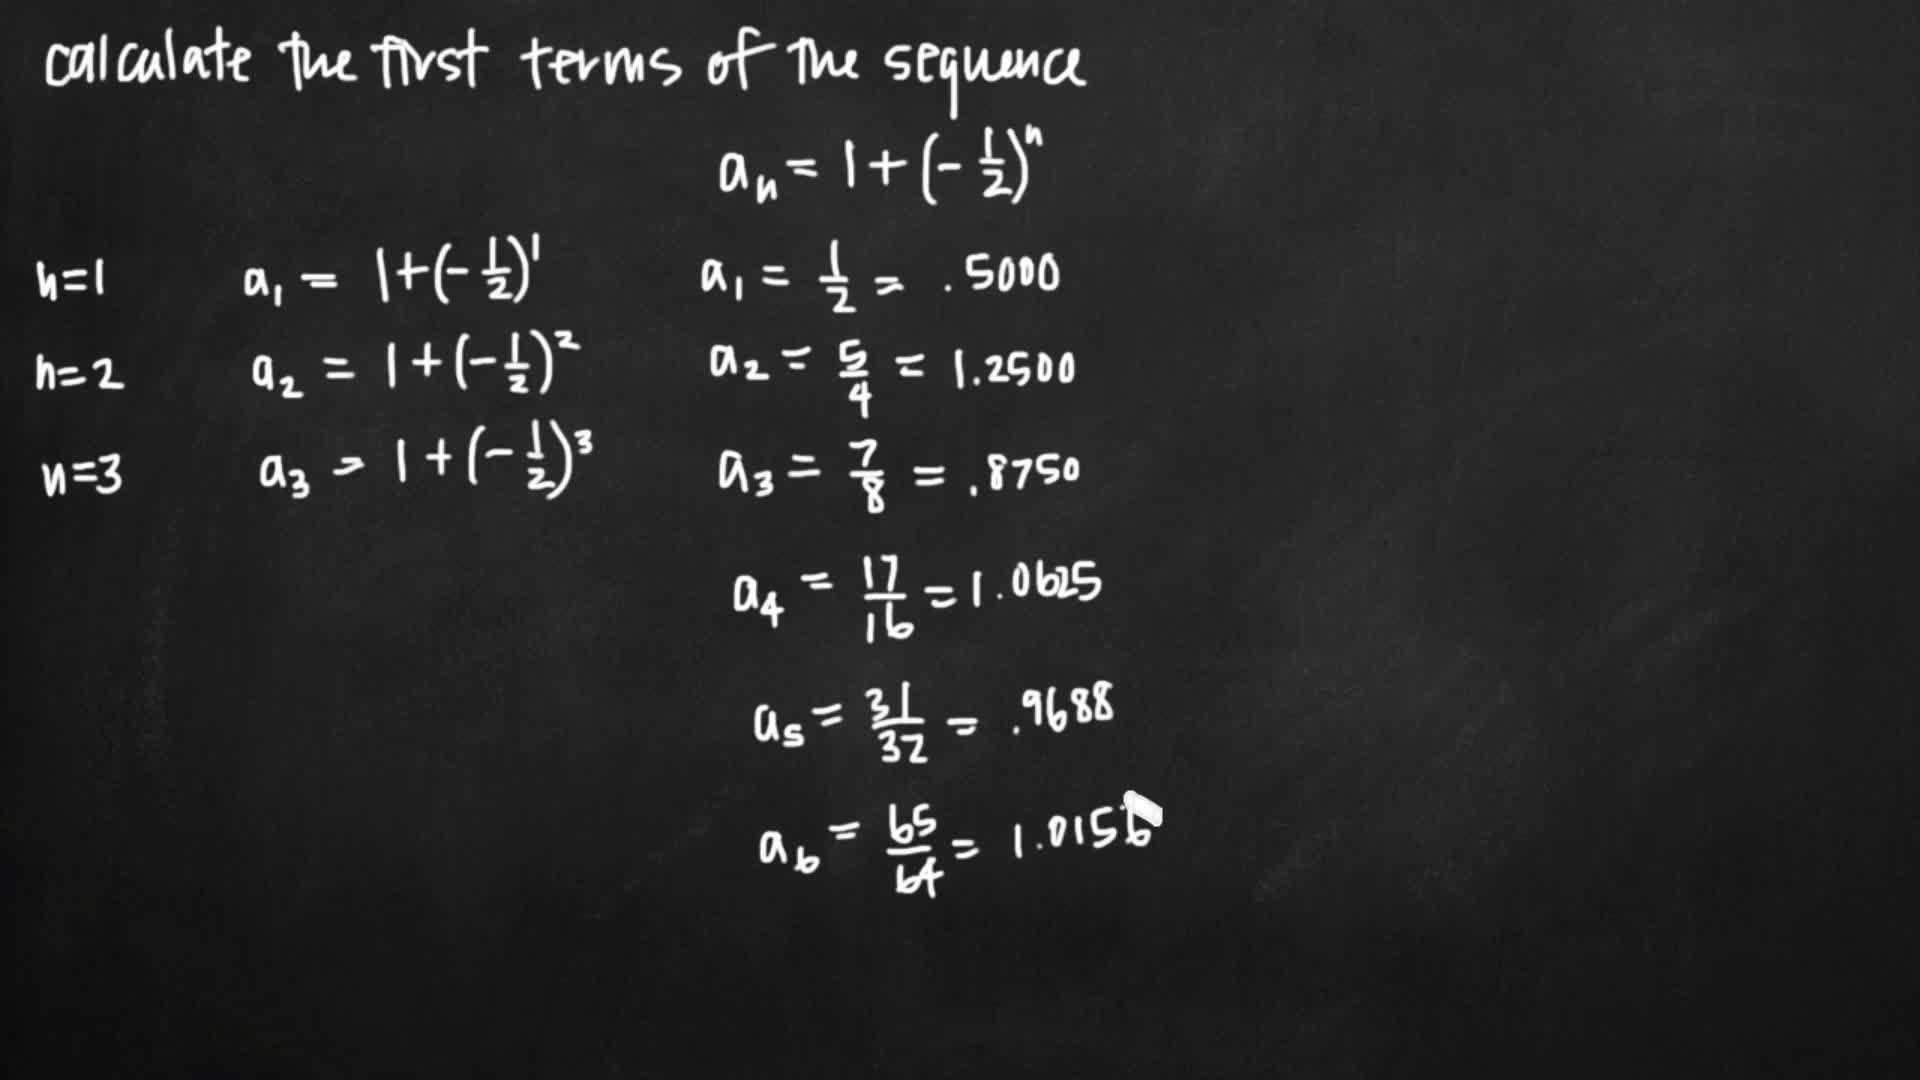 calculate the first terms of the sequence
aₙ = 1 + (-1/2)ⁿ
n=1 a₁ = 1+(-1/2)¹ a₁ = 1/2 = .5000
n=2 a₂ = 1+(-1/2)² a₂ = 5/4 = 1.2500
n=3 a₃ = 1+(-1/2)³ a₃ = 7/8 = .8750
a₄ = 17/16 = 1.0625
a₅ = 31/32 = .9688
a₆ = 65/64 = 1.0156